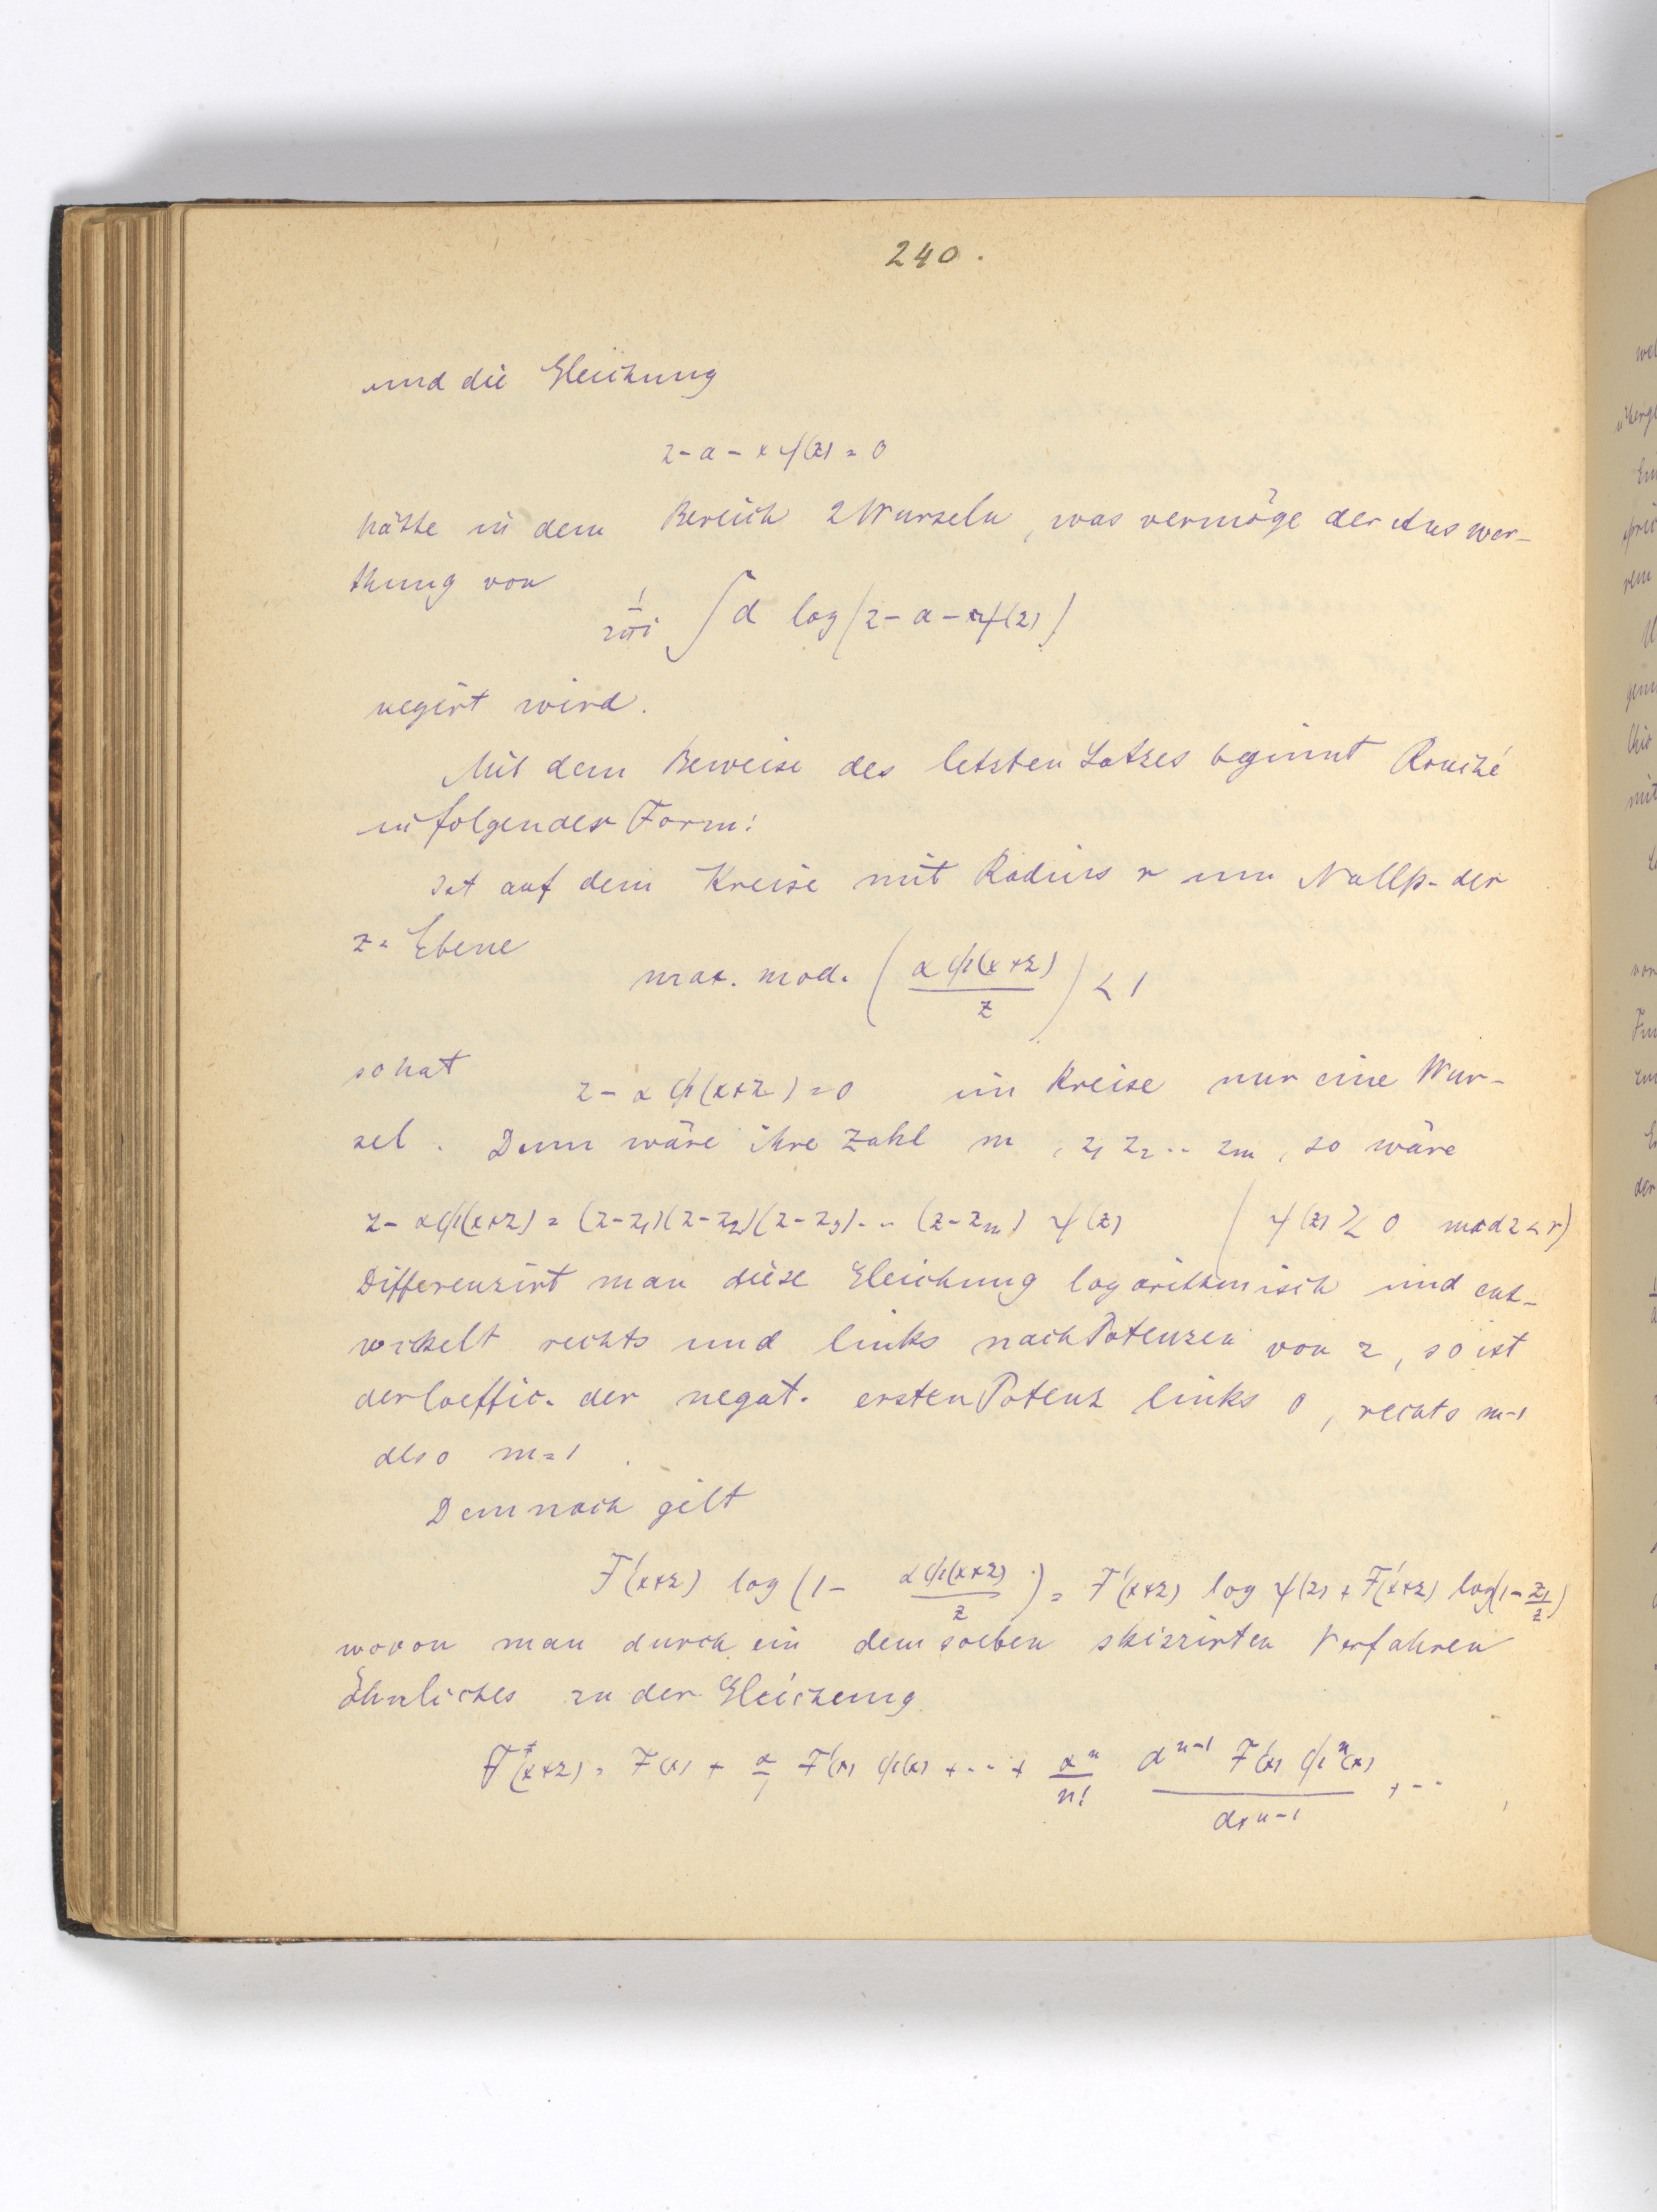 240.
und die Gleichung
z - a - x f(z) = 0
hätte in dem Bereich 2 Wurzeln, was vermöge der Auswer-
thung von
1/2πi ∫ d log (z - a - x f(z))
negirt wird.
Mit dem Beweise des letzten Satzes beginnt Rouché
in folgender Form:
Ist auf dem Kreise mit Radius r um Nullp. der
z-Ebene
max. mod. (αφ(x+z)/z) < 1
so hat
z - αφ(x+z) = 0 im Kreise nur eine Wur-
zel. Denn wäre ihre Zahl m, z₁ z₂ .. zₘ, so wäre
z - αφ(x+z) = (z-z₁)(z-z₂)(z-z₃)... (z-zₘ) ψ(z) (ψ(z) ≷ 0 mod z < r)
Differenzirt man diese Gleichung logarithmisch und ent-
wickelt rechts und links nach Potenzen von z, so ist
der Coeffic. der negat. ersten Potenz links 0, rechts m-1
also m=1.
Demnach gilt
F'(x+z) log (1 - αφ(x+z)/z) = F'(x+z) log ψ(z) + F'(x+z) log(1 - z₁/z)
wovon man durch ein dem soeben skizzirten Verfahren
Ähnliches zu der Gleichung
F(x+z) = F(x) + α/1 F'(x) φ(x) + ... + αⁿ/n! dⁿ⁻¹ F'(x) φⁿ(x)/dxⁿ⁻¹ + ...
wel